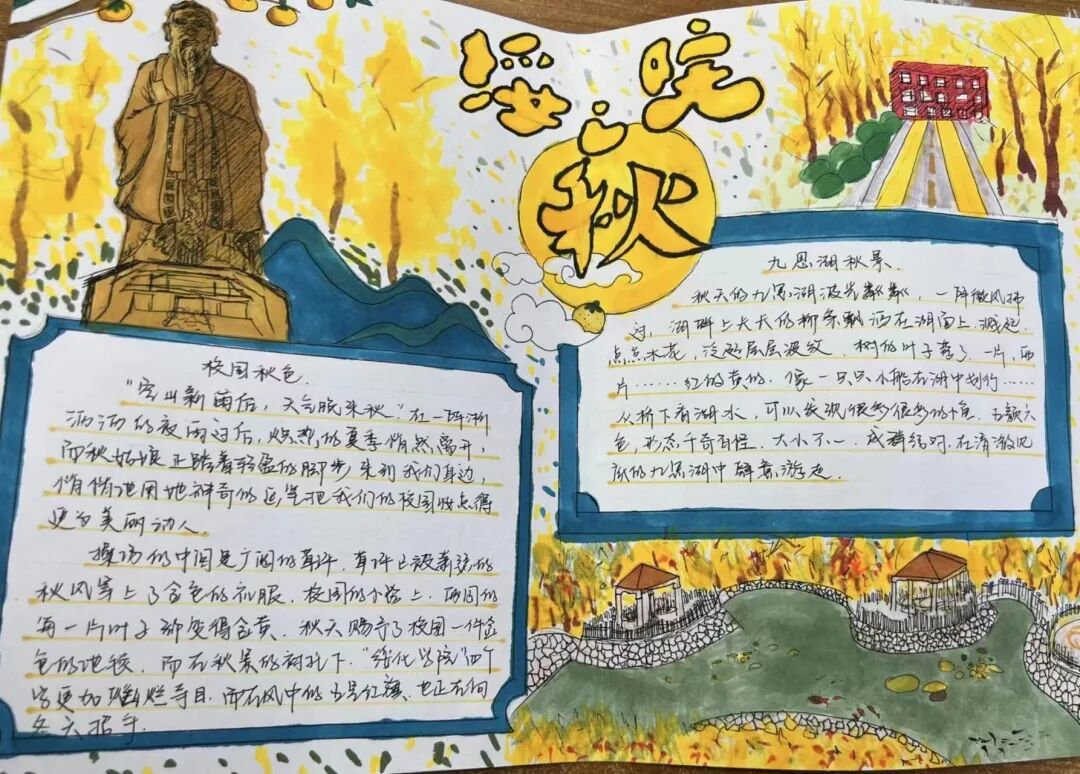 绥院
之
秋
校园秋色.
"空山新雨后，天气晚来秋"在一阵淅
沥沥的夜雨过后，炽热的夏季悄然离开，
而秋姑娘正踏着轻盈的脚步来到我们身边，
悄悄地用她神奇的笔把我们的校园妆点得
更为美丽动人.
操场的中间是广阔的草坪，草坪已被萧瑟的
秋风穿上了金色的衣服.校园的小路上.两周的
每一片叶子都变得金黄.秋天赐予了校园一件金
色的地毯.而在秋景的衬托下."绥化学院"四个
字更加璀璨夺目.而在风中的五星红旗.也正在向
冬天招手.
九思湖秋景.
秋天的九思湖波光粼粼，一阵微风拂
过.湖畔上大大的柳条飘洒在湖面上.溅起
点点水花，泛起层层波纹.树的叶子落了.一片.两
片……红的黄的.像一只只小船在湖中划行……
从桥下看湖水，可以发现很多很多的鱼.五颜六
色，形态千奇百怪.大小不一.成群结对.在清澈见
底的九思湖中游走.